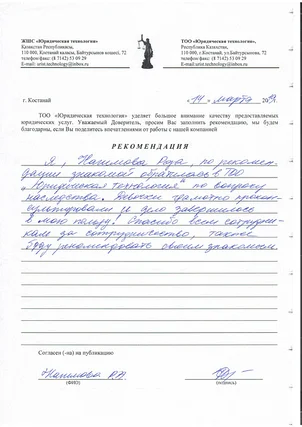 ЖШС «Юридическая технология»
Казақстан Республикасы,
110 000, Костанай қаласы, Байтурсынов көшесі, 72
телефон/факс: (8 7142) 53 09 29
E-mail: urist.technology@inbox.ru
ТОО «Юридическая технология»
Республика Казахстан,
110 000, г. Костанай, ул. Байтурсынова, 72
телефон/факс: (8 7142) 53 09 29
E-mail: urist.technology@inbox.ru
г. Костанай
«14» марта
ТОО «Юридическая технология» уделяет большое внимание качеству предоставляемых
юридических услуг. Уважаемый Доверитель, просим Вас заполнить рекомендацию, мы будем
благодарны, если Вы поделитесь впечатлениями от работы с нашей компанией
РЕКОМЕНДАЦИЯ
Я, Нагимова Роза, по рекомен-
дации знакомой обратилась в ТОО
"Юридическая технология" по вопросу
наследства. Девочки грамотно прокон-
сультировали и дело завершилось
в мою пользу! Спасибо всем сотрудни-
кам за сотрудничество, также
буду рекомендовать своим знакомым.
Согласен (-на) на публикацию
Нагимова Р.
(ФИО)
(подпись)